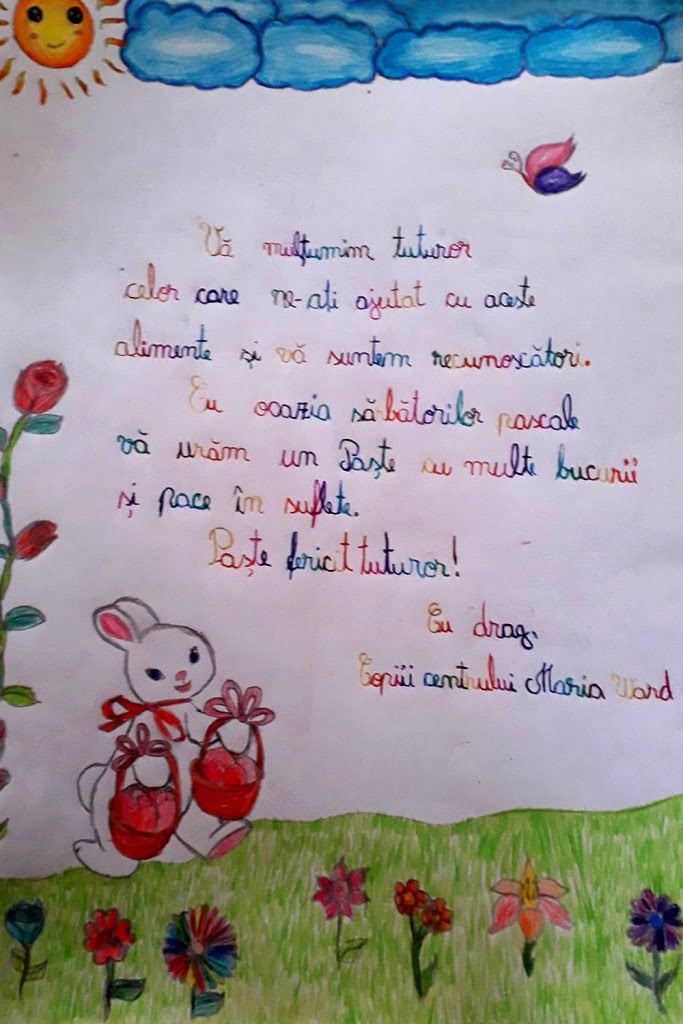 Vă mulțumim tuturor
celor care ne-ați ajutat cu aceste
alimente și vă suntem recunoscători.
Cu ocazia sărbătorilor pascale
vă urăm un Paște cu multe bucurii
și pace în suflete.
Paște fericit tuturor!
Cu drag,
Copiii centrului Maria Ward